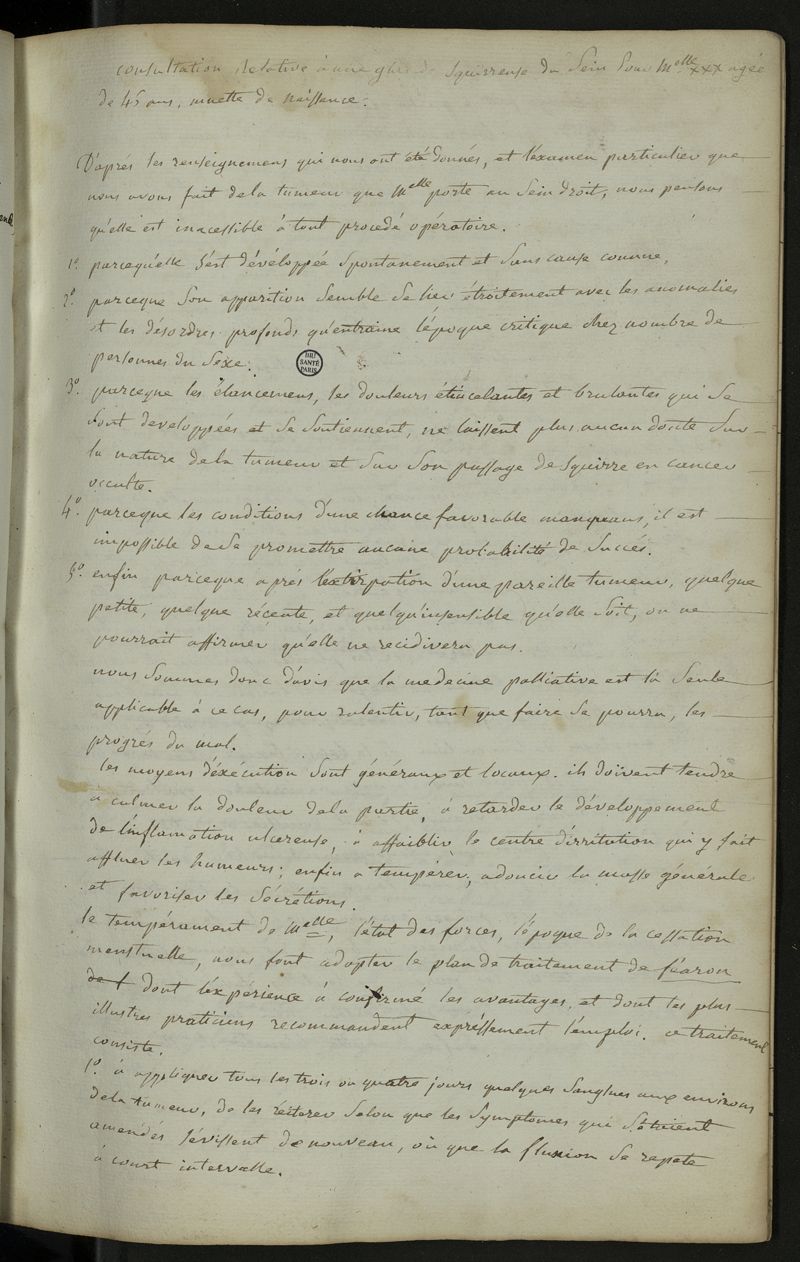 consultation relative à une glande squirreuse du sein pour Melle xxx agée
de 45 ans, muette de naissance.
D'aprés les renseignemens qui nous ont été donnés, et l'éxamen particulier que
nous avons fait de la tumeur que Melle porte au sein droit, nous pensons
qu'elle est inacessible à tout procedé opératoire.
1º parcequ'elle s'est développée spontanement et sans cause connue,
2º. parceque son apparition semble se lier étroitement avec les anomalies
et les désordres profonds qu'entraine l'époque critique chez nombre de
personnes du sexe.
BIU SANTÉ PARIS
3º. parceque les élancemens, les douleurs étincelantes et brulantes qui se
sont developpées et se soutiennent, ne laissent plus aucun doute sur
la nature de la tumeur et sur son passage de squirre en cancer
occulte.
4º. parceque les conditions d'une chance favorable manquans, il est
impossible de se promettre aucune probabilité de succés.
5º. enfin parceque aprés l'extirpation d'une pareille tumeur, quelque
petite, quelque récente, et quelqu'insensible qu'elle soit, on ne
pourrait affirmer qu'elle ne recidivera pas.
nous sommes donc d'avis que la medecine palliative est la seule
applicable à ce cas, pour ralentir, tant que faire se pourra, les
progrés du mal.
les moyens d'éxécution sont généraux et locaux. ils doivent tendre
a calmer la douleur de la partie, à retarder le développement
de l'inflamation ulcereuse, à affaiblir le centre d'irritation qui y fait
affluer les humeurs; enfin a tempérer, adoucir la masse générale
et favoriser les sécrétions.
le tempérament de Melle, l'état des forces, l'époque de la cessation
menstruelle, nous font adopter le plan de traitement de féaron
de l dont l'éxpérience à confirmé les avantages, et dont les plus
illustres praticiens recommandent expréssement l'emploi. ce traitement
consiste.
1º à appliquer tous les trois ou quatre jours quelques sangsues aux environs
de la tumeur, de les réiterer selon que les symptomes qui s'étaient
amendés sévissent de nouveau, où que la fluxion se repete
à court intervalle.